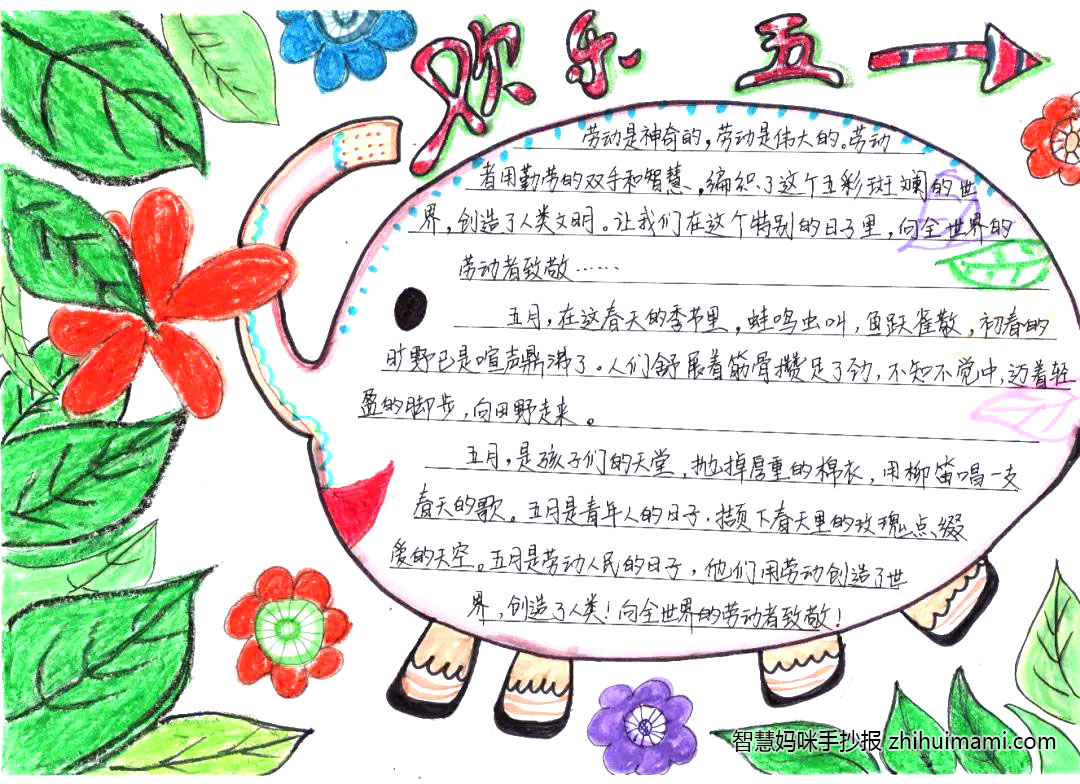 欢乐五一
劳动是神奇的，劳动是伟大的。劳动
者用勤劳的双手和智慧，编织了这个五彩斑斓的世
界，创造了人类文明。让我们在这个特别的日子里，向全世界的
劳动者致敬……
五月，在这春天的季节里，蛙鸣虫叫，鱼跃雀散，初春的
旷野已是喧声鼎沸了。人们舒展着筋骨攒足了劲，不知不觉中，迈着轻
盈的脚步，向田野走来。
五月，是孩子们的天堂，抛掉厚重的棉衣，用柳笛唱一支
春天的歌。五月是青年人的日子，撷下春天里的玫瑰点缀
爱的天空。五月是劳动人民的日子，他们用劳动创造了世
界，创造了人类！向全世界的劳动者致敬！
智慧妈咪手抄报 zhihuimami.com